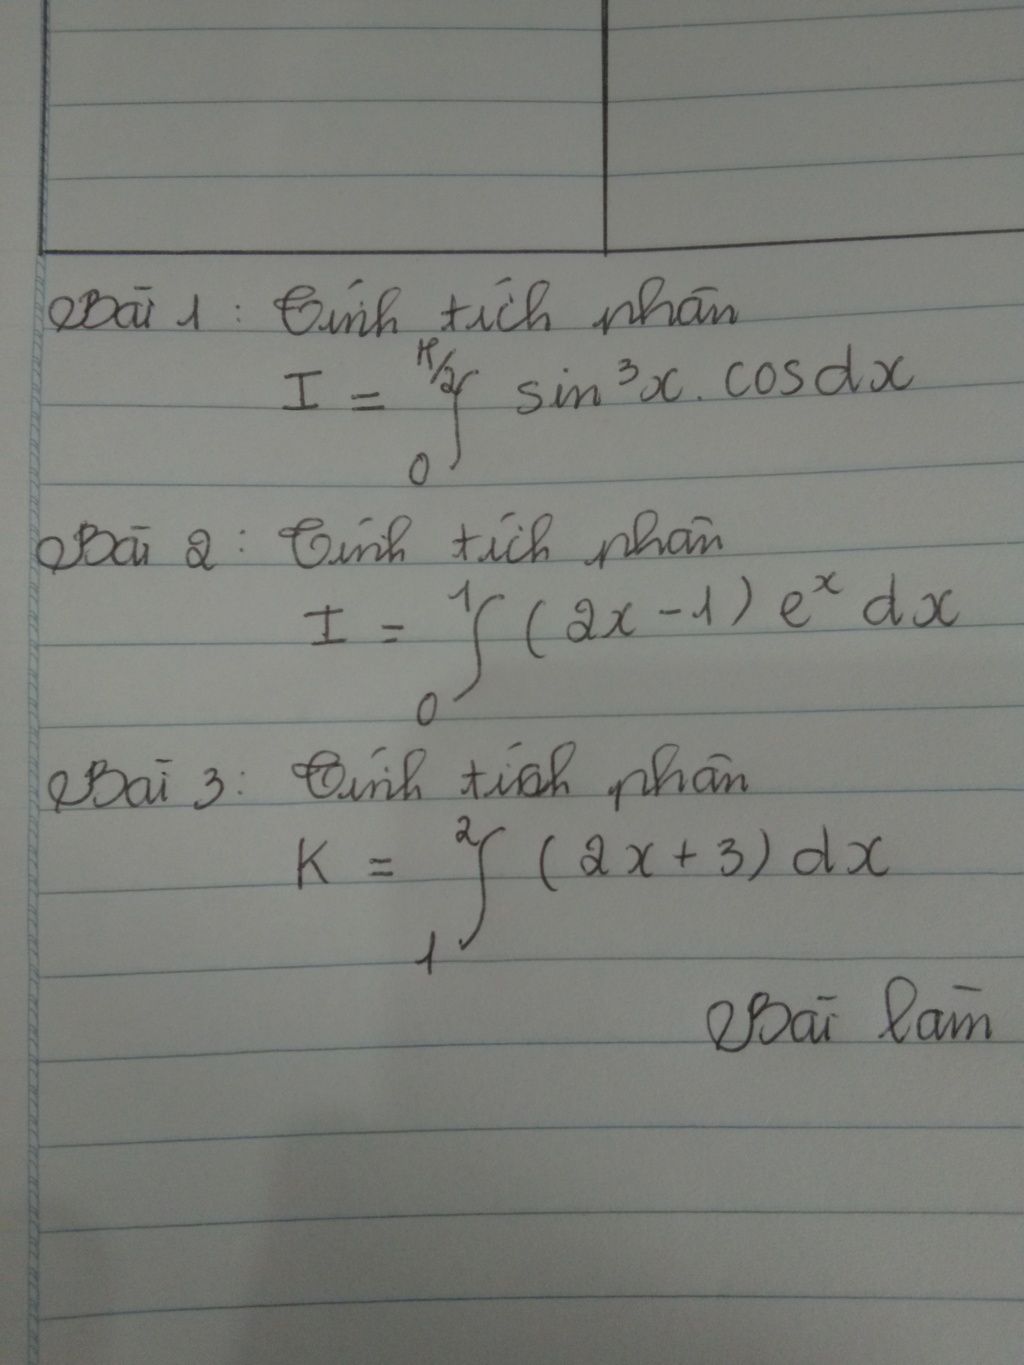 Bài 1 : Tính tích phân
I = ∫₀^(π/2) sin³x. cosdx
Bài 2 : Tính tích phân
I = ∫₀¹ (2x - 1) eˣ dx
Bài 3 : Tính tích phân
K = ∫₁² (2x + 3) dx
Bài làm